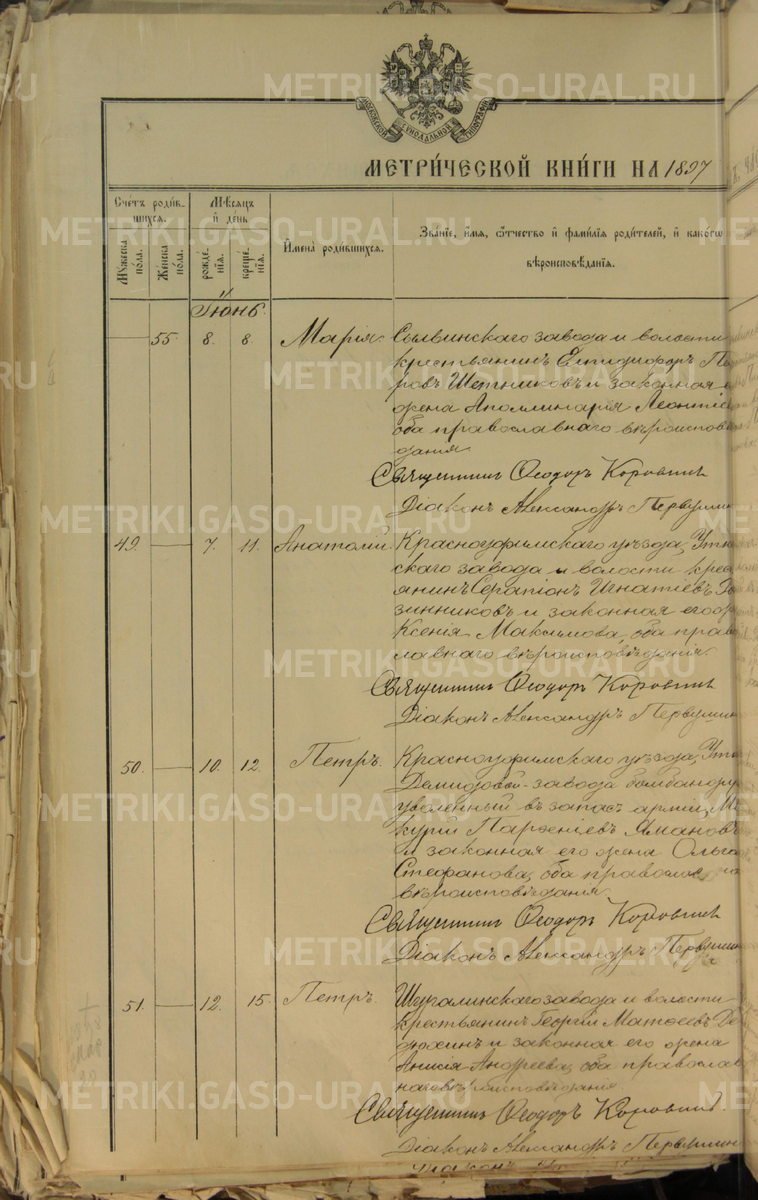 МОСКОВСКОЙ СѴНОДАЛЬНОЙ ТИПОГРАФІИ
МЕТРИ́ЧЕСКОЙ КНИ́ГИ НА 1897
Сче́тъ роди́в-
шихся.
Мѣ́сяцъ
и҆ день
Мꙋ́жеска
по́ла.
Же́нска
по́ла.
рожде́-
нїѧ.
креще́-
нїѧ.
И҆мена̀ роди́вшихся.
Зва́нїе, и҆́мя, ѻ҆́тчество и҆ фами́лїя роди́телей, и҆ како́гѡ
вѣроисповѣ́данїя.
Іюнь.
55. 8. 8. Марія. Сылвинскаго завода и волости
крестьянинъ
Щетниковъ и законная
жена Аполлинарія Леонтіе
оба православнаго вѣроиспов
данія
Священникъ Ѳеодоръ Коровинъ
Діаконъ Александръ Первушин
49. 7. 11. Анатолій. Красноуфимскаго уѣзда, Утк
скаго завода и волости крес
янинъ Серапіонъ Игнатіевъ
зинниковъ и законная его
Ксенія Максимова, оба прав
лавнаго вѣроисповѣданія.
Священникъ Ѳеодоръ Коровинъ
Діаконъ Александръ Первушин
50. 10. 12. Петръ. Красноуфимскаго уѣзда, Утк
Демидовой завода бомбандир
уволенный въ запасъ арміи, Ме
курій Парѳеніевъ Ямановъ
и законная его жена Ольга
Стефанова, оба православна
вѣроисповѣданія
Священникъ Ѳеодоръ Коровинъ
Діаконъ Александръ Первушин
51. 12. 15. Петръ. Шургалинскаго завода и волости
крестьянинъ Георгій Матѳеевъ
и законная его жена
Анисія Андреева, оба православ
наго вѣроисповѣданія.
Священникъ Ѳеодоръ Коровинъ.
Діаконъ Александръ Первушин
METRIKI.GASO-URAL.RU